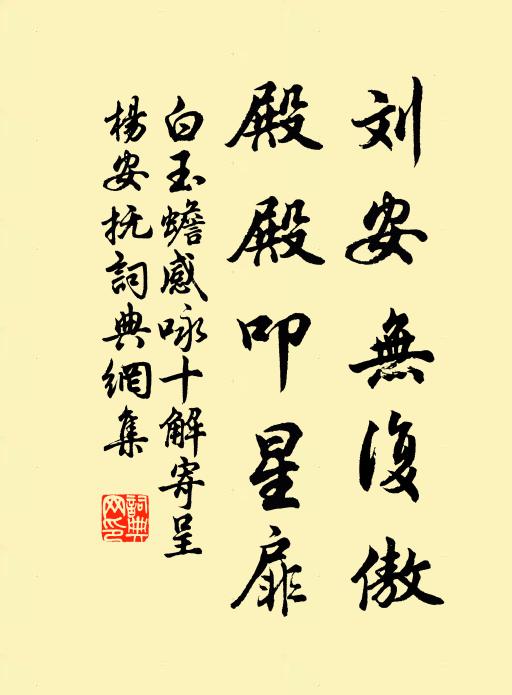 刘安無復傲
殿殿叩星扉
白玉蟾感咏十解寄呈
楊安抚詞典網集
詞典網印